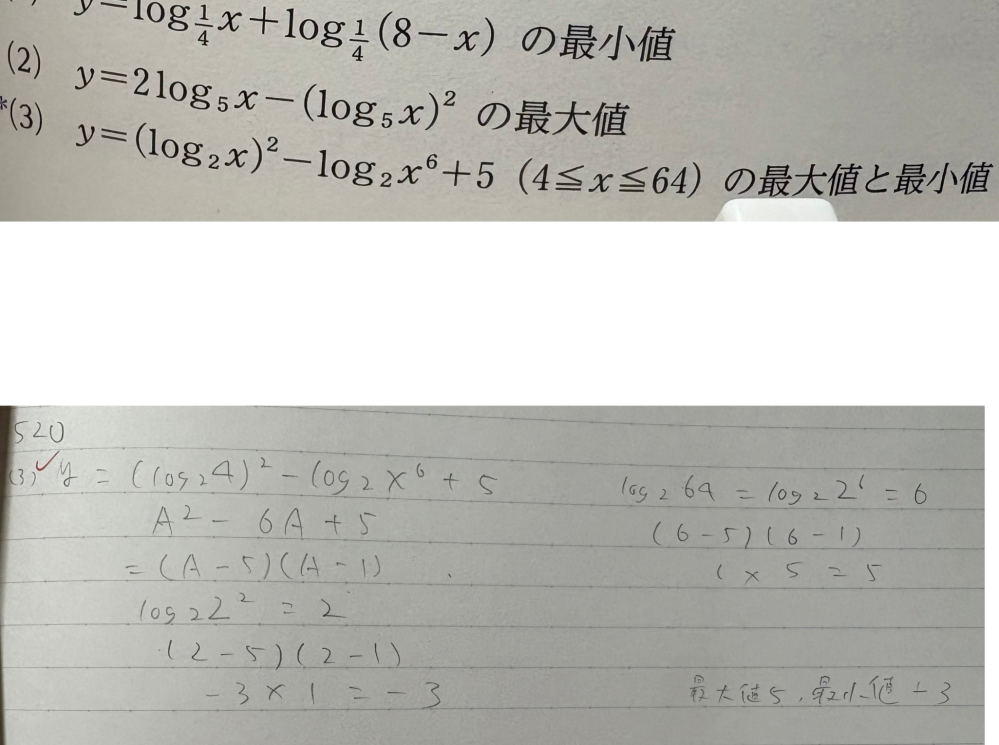 y=log₁/₄x+log₁/₄(8−x) の最小値
(2) y=2log₅x−(log₅x)² の最大値
*(3) y=(log₂x)²−log₂x⁶+5 (4≦x≦64) の最大値と最小値
520
(3) y = (log₂4)² − log₂x⁶ + 5
A² − 6A + 5
= (A − 5)(A − 1)
log₂2² = 2
(2 − 5)(2 − 1)
−3 × 1 = −3
log₂64 = log₂2⁶ = 6
(6 − 5)(6 − 1)
1 × 5 = 5
最大値5、最小値−3